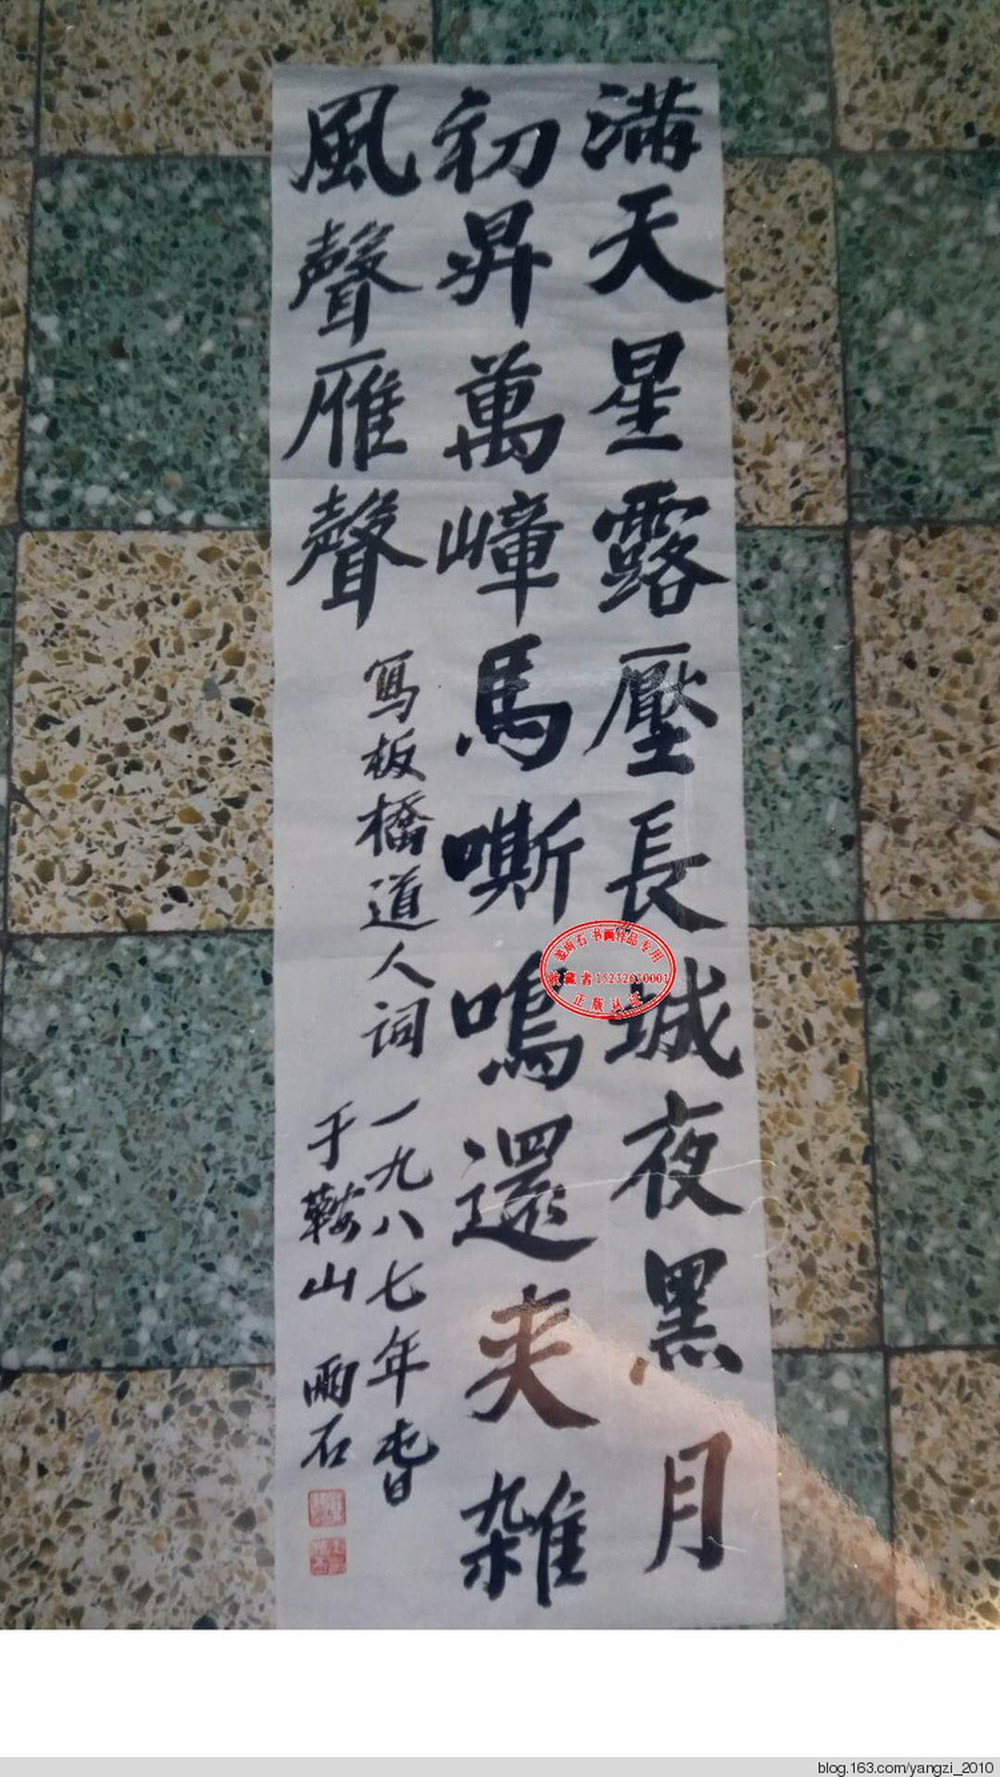 满天星露壓長城夜黑月
初昇萬嶂馬嘶鳴還夾雜
風聲雁聲
寫板橋道人词
一九八七年春
于鞍山 雨石
姜雨石书画作品专用
收藏者15232630001
正版认证
blog.163.com/yangzi_2010